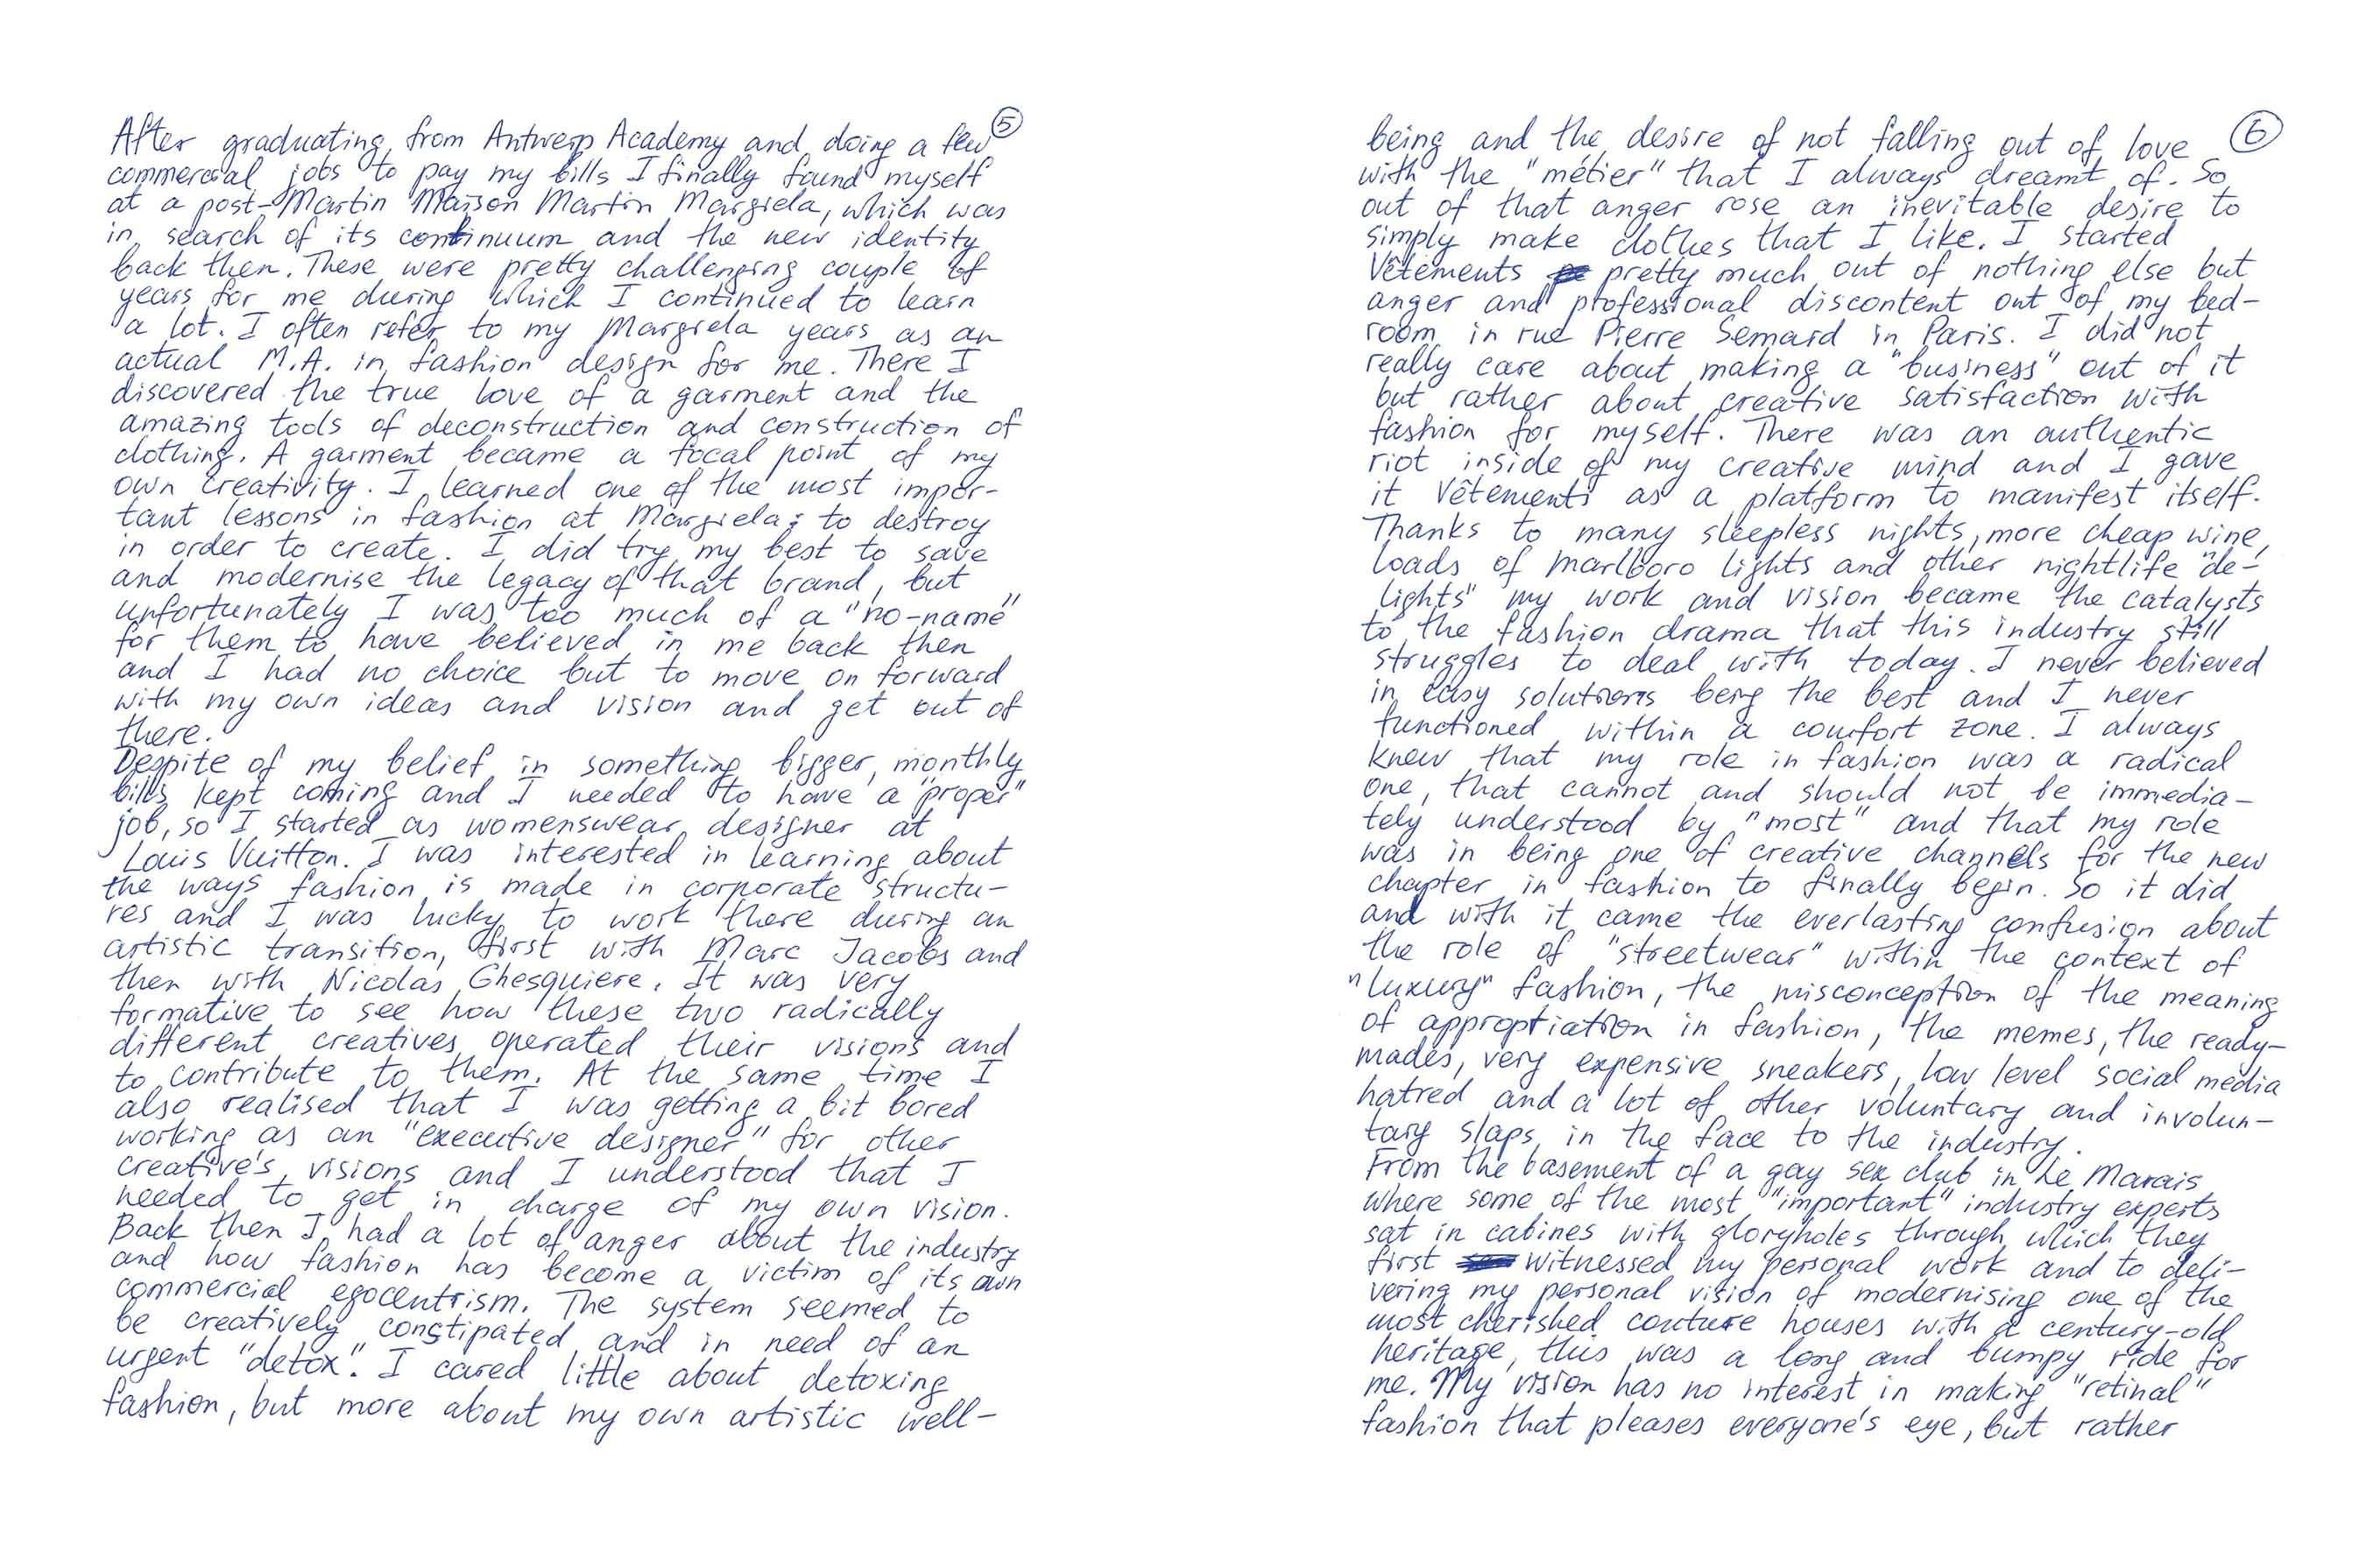 5
After graduating from Antwerp Academy and doing a few
commercial jobs to pay my bills I finally found myself
at a post-Martin Maison Martin Margiela, which was
in search of its continuum and the new identity
back then. These were pretty challenging couple of
years for me during which I continued to learn
a lot. I often refer to my Margiela years as an
actual M.A. in fashion design for me. There I
discovered the true love of a garment and the
amazing tools of deconstruction and construction of
clothing. A garment became a focal point of my
own creativity. I learned one of the most impor-
tant lessons in fashion at Margiela: to destroy
in order to create. I did try my best to save
and modernise the legacy of that brand, but
unfortunately I was too much of a "no-name"
for them to have believed in me back then
and I had no choice but to move on forward
with my own ideas and vision and get out of
there.
Despite of my belief in something bigger, monthly
bills kept coming and I needed to have a "proper"
job, so I started as womenswear designer at
Louis Vuitton. I was interested in learning about
the ways fashion is made in corporate structu-
res and I was lucky to work there during an
artistic transition, first with Marc Jacobs and
then with Nicolas Ghesquiere. It was very
formative to see how these two radically
different creatives operated their visions and
to contribute to them. At the same time I
also realised that I was getting a bit bored
working as an "executive designer" for other
creative's visions and I understood that I
needed to get in charge of my own vision.
Back then I had a lot of anger about the industry
and how fashion has become a victim of its own
commercial egocentrism. The system seemed to
be creatively constipated and in need of an
urgent "detox". I cared little about detoxing
fashion, but more about my own artistic well-
6
being and the desire of not falling out of love
with the "métier" that I always dreamt of. So
out of that anger rose an inevitable desire to
simply make clothes that I like. I started
Vêtements pretty much out of nothing else but
anger and professional discontent out of my bed-
room in rue Pierre Semard in Paris. I did not
really care about making a "business" out of it
but rather about creative satisfaction with
fashion for myself. There was an authentic
riot inside of my creative mind and I gave
it Vêtements as a platform to manifest itself.
Thanks to many sleepless nights, more cheap wine,
loads of Marlboro lights and other nightlife "de-
lights" my work and vision became the catalysts
to the fashion drama that this industry still
struggles to deal with today. I never believed
in easy solutions being the best and I never
functioned within a comfort zone. I always
knew that my role in fashion was a radical
one, that cannot and should not be immedia-
tely understood by "most" and that my role
was in being one of creative channels for the new
chapter in fashion to finally begin. So it did
and with it came the everlasting confusion about
the role of "streetwear" within the context of
"luxury" fashion, the misconception of the meaning
of appropriation in fashion, the memes, the ready-
mades, very expensive sneakers, low level social media
hatred and a lot of other voluntary and involun-
tary slaps in the face to the industry.
From the basement of a gay sex club in Le Marais
where some of the most "important" industry experts
sat in cabines with gloryholes through which they
first witnessed my personal work and to deli-
vering my personal vision of modernising one of the
most cherished couture houses with a century-old
heritage, this was a long and bumpy ride for
me. My vision has no interest in making "retinal"
fashion that pleases everyone's eye, but rather